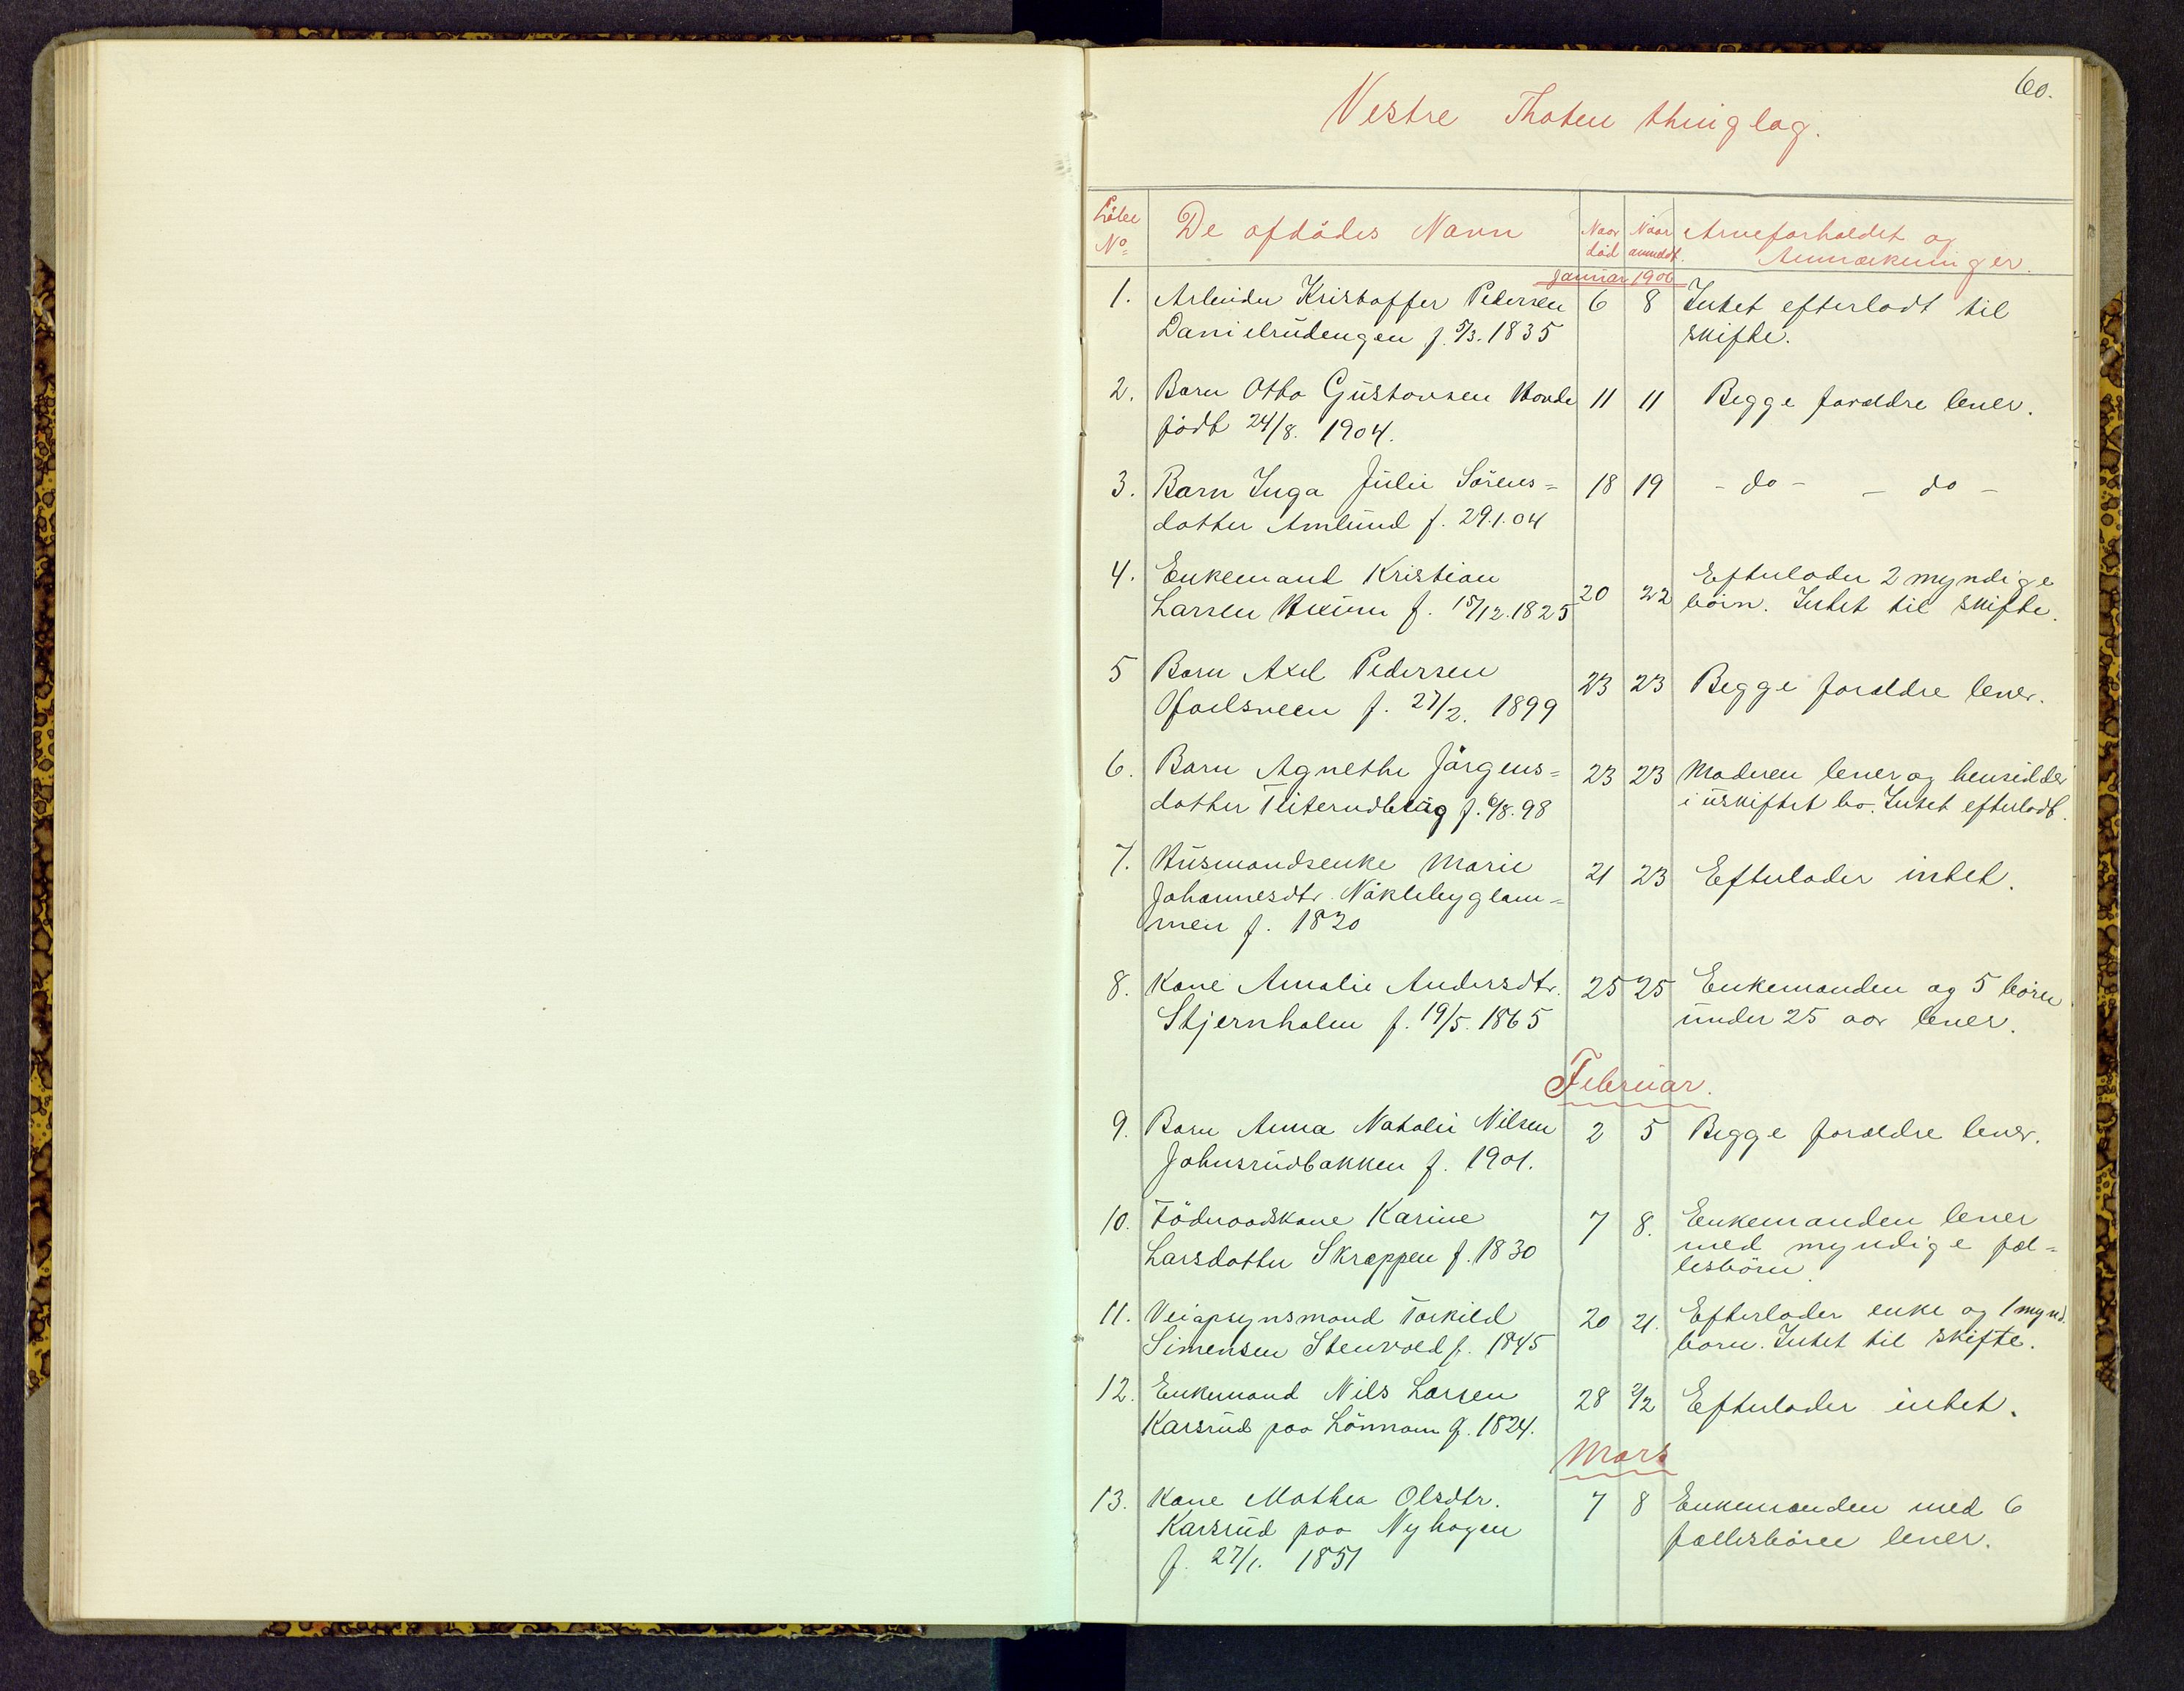 60.
Vestre Thoten thinglag.
Löbe No De afdödes Navn Naar död Naar anmeldt. Arveforholdet og Anmærkninger.
Januar 1906
1. Arbeider Kristoffer Pedersen 6 8 Intet efterladt til
Danielrudengen f. 5/3. 1835 skifte.
2. Barn Otto Gustavsen Hovde 11 11 Begge forældre lever.
födt 24/8. 1904.
3. Barn Inga Julie Sörens= 18 19 - do - - do -
datter Amlund f. 29.1.04
4. Enkemand Kristian 20 22 Efterlader 2 myndige
Larsen f. 15/12.1825 börn. Intet til skifte.
5 Barn Axel Pedersen 23 23 Begge forældre lever.
f. 27/2. 1899
6. Barn Agnethe Jörgens= 23 23 Moderen lever og hensidder
datter f. 6/8. 98 i uskiftet bo. Intet efterladt.
7. Husmandsenke Marie 21 23 Efterlader intet.
Johannesdtr. Nöklebyglam=
men f. 1820
8. Kone Amalie Andersdtr. 25 25 Enkemanden og 5 börn
Stjernholm f. 19/5. 1865 under 25 aar lever.
Februar.
9. Barn Anna Natalie Nilsen 2 5 Begge forældre lever.
Johnsrudbakken f. 1901.
10. Föderaadskone Karine 7 8. Enkemanden lever
Larsdatter Skræppen f. 1830 med myndige fæl=
lesbörn.
11. Veiopsynsmand Torkild 20 21. Efterlader enke og 1 mynd.
Simensen Stenvold f. 1845 barn. Intet til skifte.
12. Enkemand Nils Larsen 28 2/2 Efterlader intet.
Karsrud paa Lönnom f. 1824.
Mars
13. Kone Mathea Olsdtr. 7 8 Enkemanden med 6
Karsrud paa Nyhagen fællesbörn lever.
f. 27/1. 1851